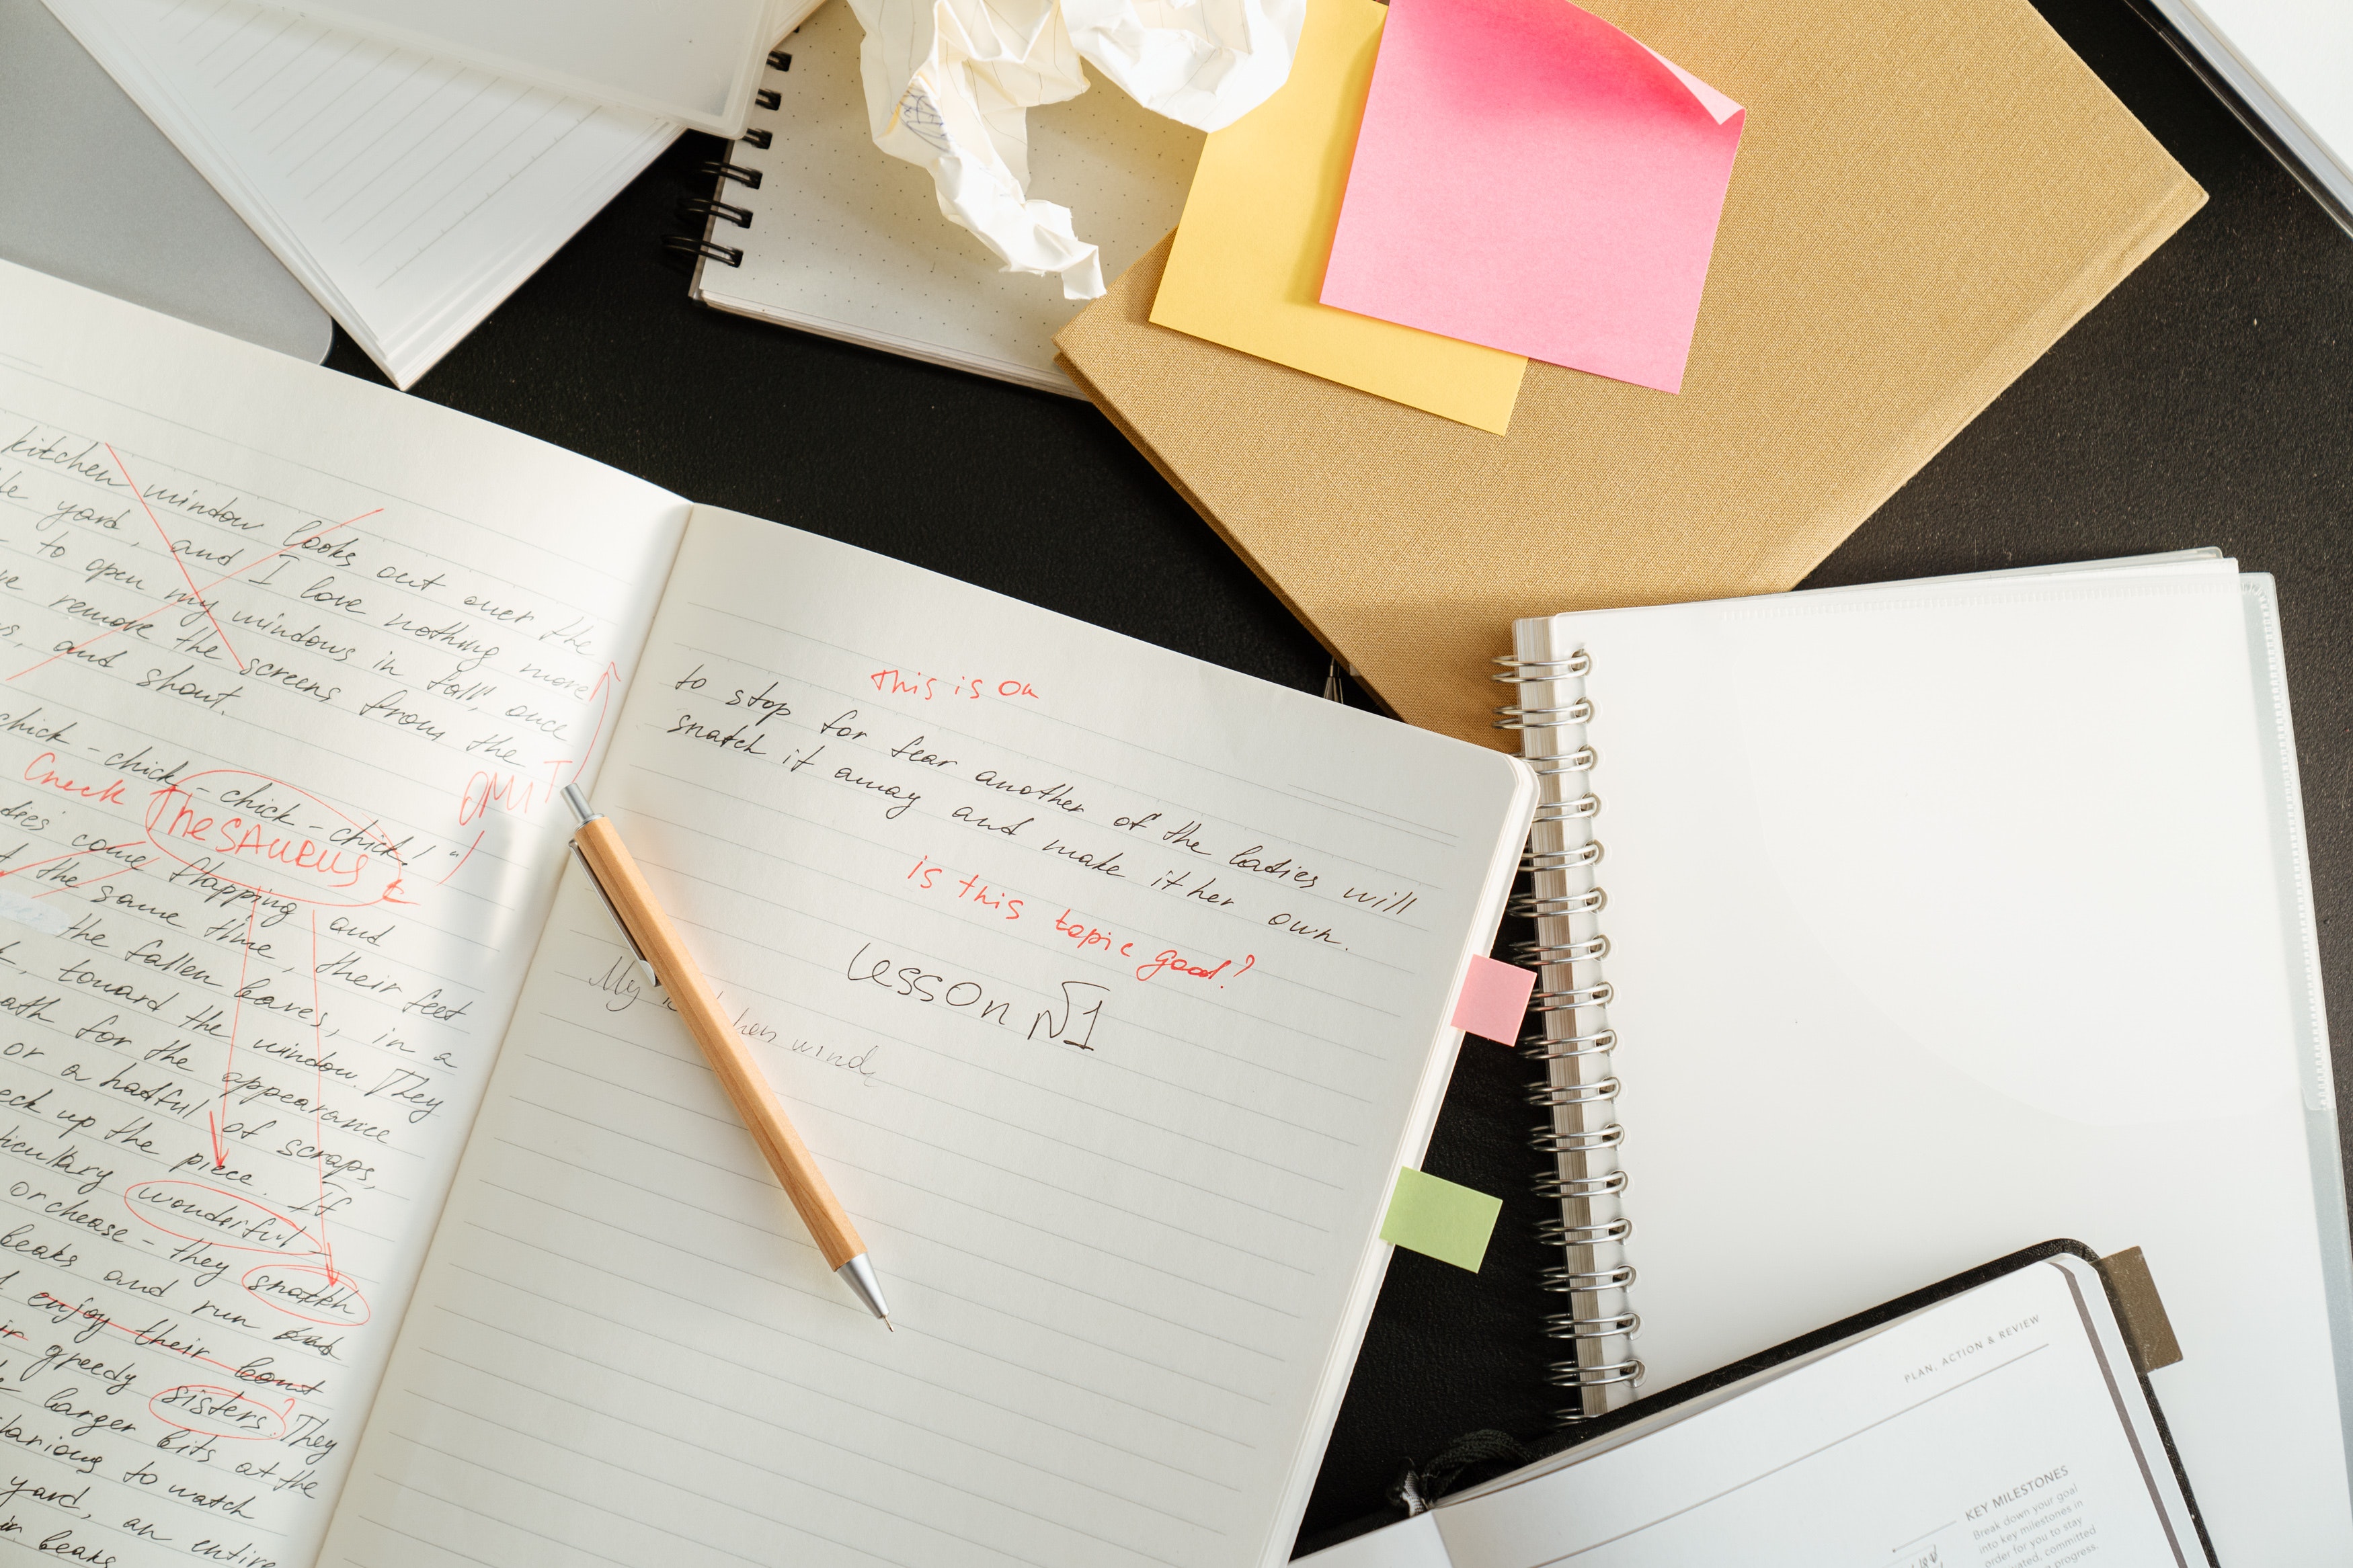 kitchen window looks out over the
yard, and I love nothing more
to open my windows in fall, once
remove the screens from the
and shout.
chick-chick-chick-chick!"
Check
Thesaurus
OMIT
come flapping and
the same time, their feet
the fallen leaves, in a
toward the window. They
for the appearance
or a hatful of scraps,
up the piece. If
wonderful-
or chease - they snatch
beaks and run
enjoy their
greedy sisters? They
larger bits at the
to watch
yard, an entire
beaks
This is Ok
to stop for fear another of the ladies will
snatch it away and make it her own.
is this topic good?
Lesson №1
My hen wind
PLAN, ACTION & REVIEW
KEY MILESTONES
Break down your goal
into key milestones in
order for you to stay
committed
progress.